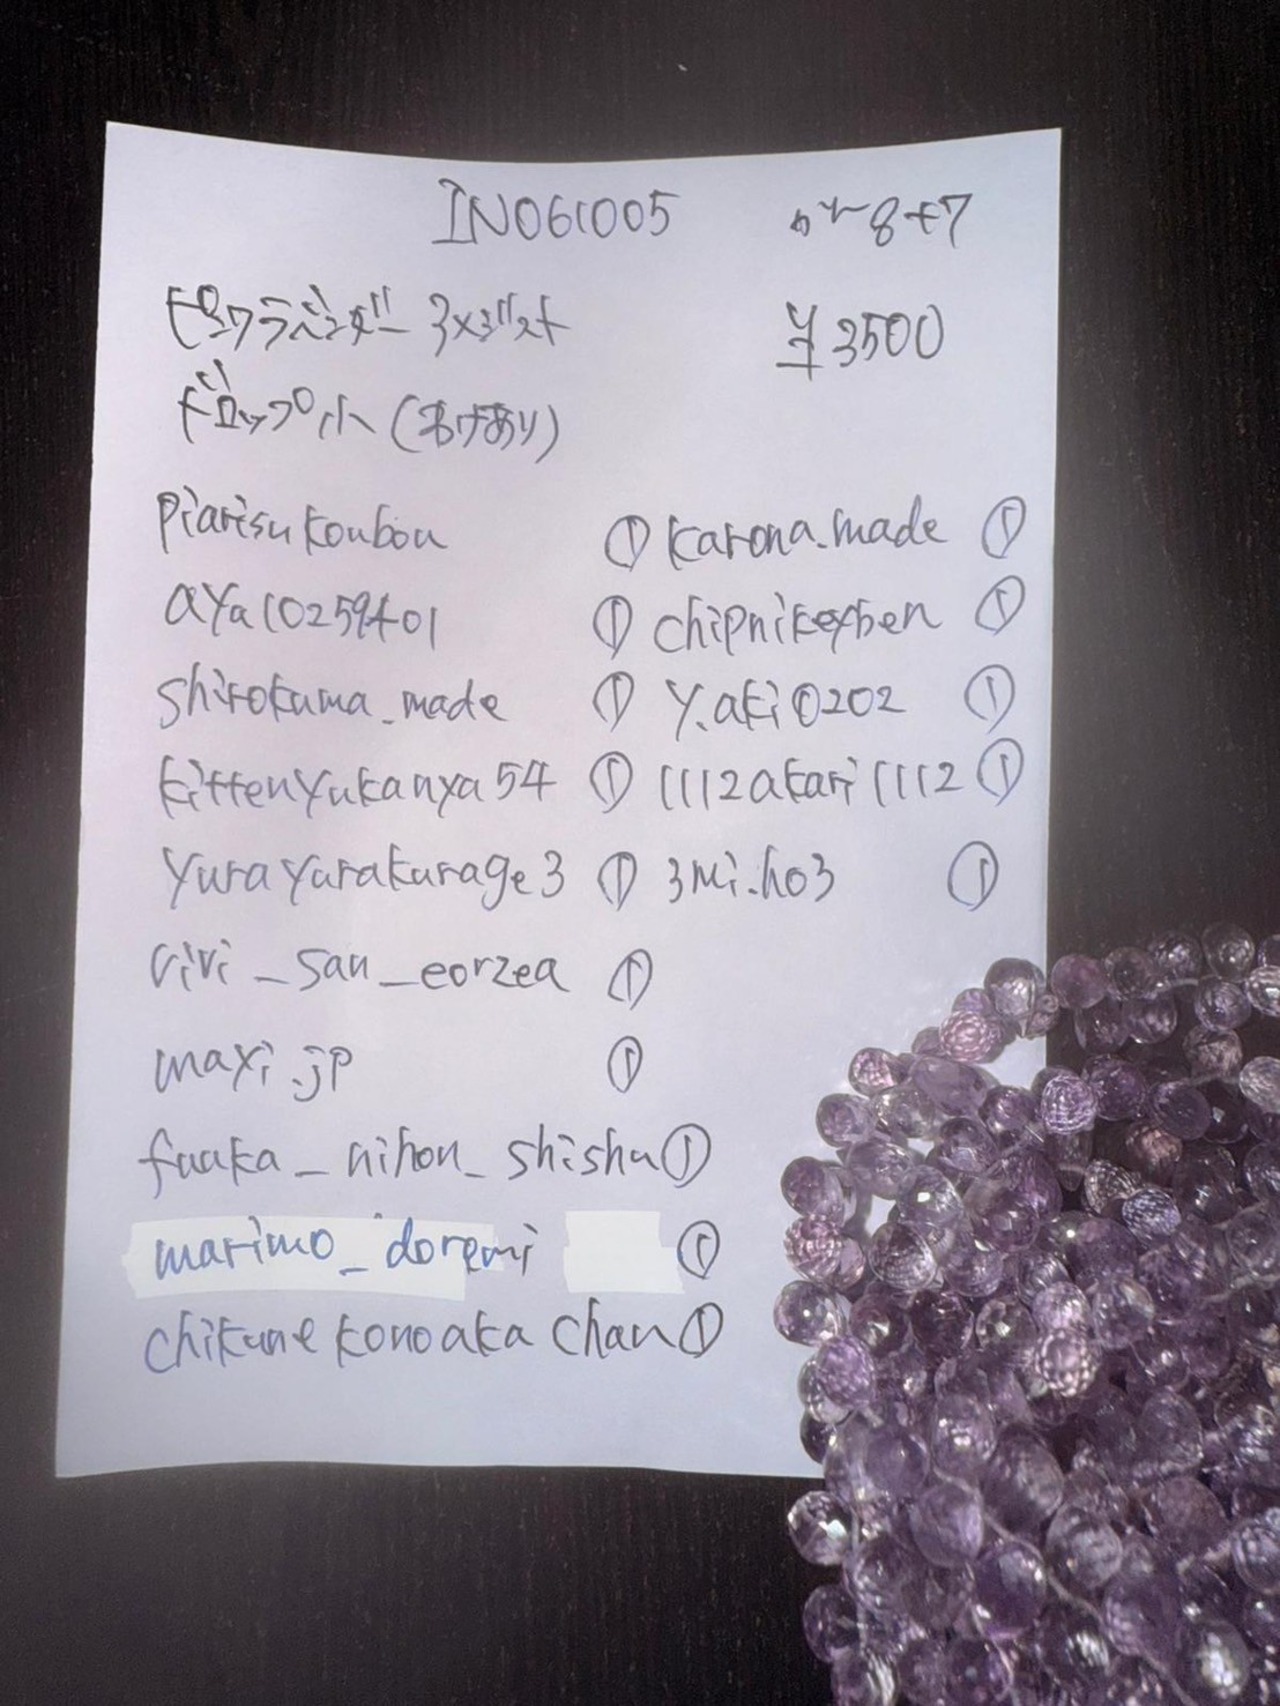 IN061005
¥3500
ピンクラベンダーアメジスト
ドロップ小(あけあり)
piarisukoubou ① karona.made ①
aya10259401 ① chipnikeyben ①
shirokuma_made ① y.aki0202 ①
kittenyukanya54 ① 1112akari1112 ①
yurayurakurage3 ① 3mi.ho3 ①
vivi_san_eorzea ①
maxi.jp ①
fuuka_nihon_shishu ①
marimo_doremi ①
chikunekonoakachan ①